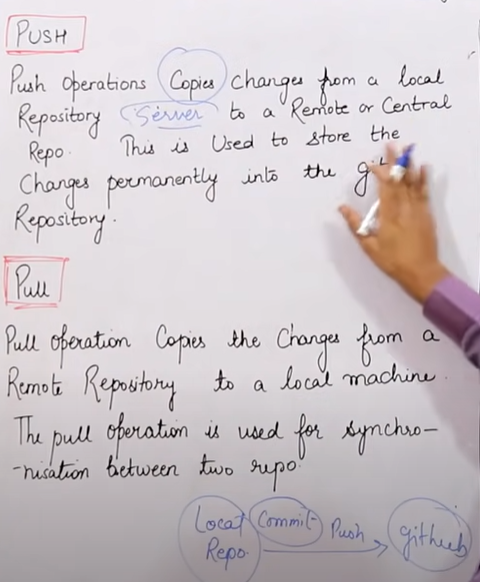 PUSH
Push Operations Copies Changes from a local
Repository Server to a Remote or Central
Repo. This is Used to store the
Changes permanently into the
Repository.
Pull
Pull operation Copies the Changes from a
Remote Repository to a local machine.
The pull operation is used for synchro-
-nisation between two repo.
Local Repo. Commit Push github